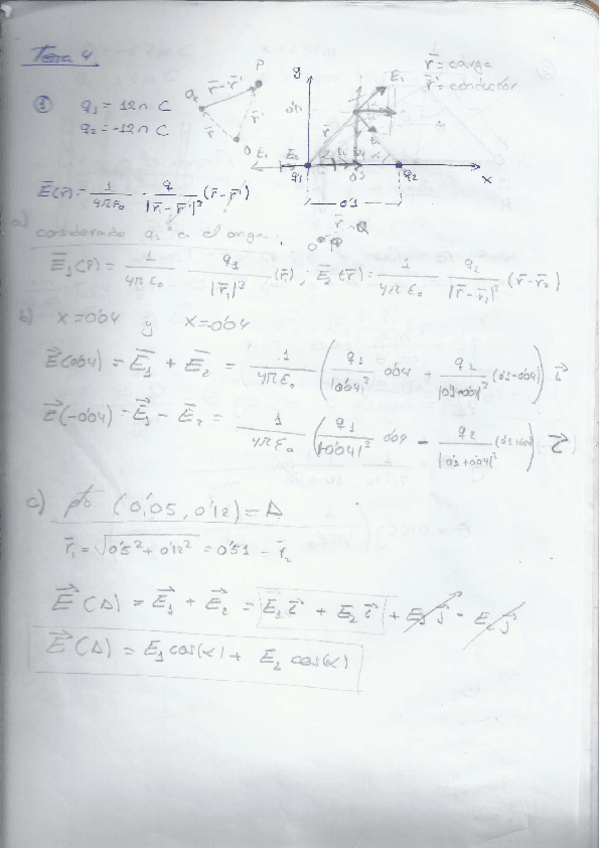 Tema 4
① q₁ = 12 n C
q₂ = -12 n C
P
O
r̄ = carga
r̄' = conductor
y
E₁
E₂
q₁
q₂
x
0'1
Ē(r̄) = 1/4πε₀ · q/|r̄ - r̄'|³ (r̄ - r̄')
a) considerado q₁ el origen.
Ē₁(r̄) = 1/4πε₀ q₁/|r̄₁|³ (r̄) ; Ē₂(r̄) = 1/4πε₀ q₂/|r̄ - r̄₂|³ (r̄ - r̄₂)
b) x = 0'04 y x = -0'04
E⃗(0'04) = E⃗₁ + E⃗₂ = 1/4πε₀ (q₁/|0'04|³ 0'04 + q₂/|0'1-0'04|³ (0'1-0'04)) i⃗
E⃗(-0'04) = E⃗₁ - E⃗₂ = 1/4πε₀ (q₁/|-0'04|³ - q₂/|0'1+0'04|³)
c) pto (0'05, 0'12) = A
r̄₁ = √0'5² + 0'12² = 0'51 - r̄₂
E⃗(A) = E⃗₁ + E⃗₂ = E₁ i⃗ + E₂ i⃗ + E₁ j⃗ - E₂ j⃗
E⃗(A) = E₁ cos(α) + E₂ cos(α)